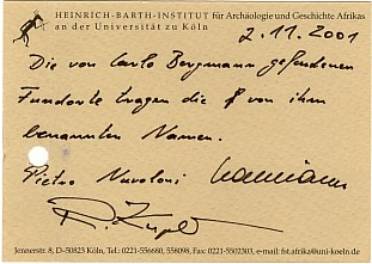 HEINRICH-BARTH-INSTITUT für Archäologie und Geschichte Afrikas
an der Universität zu Köln
2.11.2001
Die von Carlo Bergmann gefundenen
Fundorte tragen die von ihm
benannten Namen.
Pietro Nuvoloni
Jennerstr. 8, D-50823 Köln, Tel.: 0221-556680, 558098, Fax: 0221-5502303, e-mail: fst.afrika@uni-koeln.de